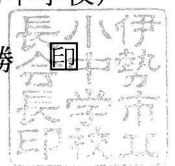 勝 印
伊勢市立
小中学校
長会長印